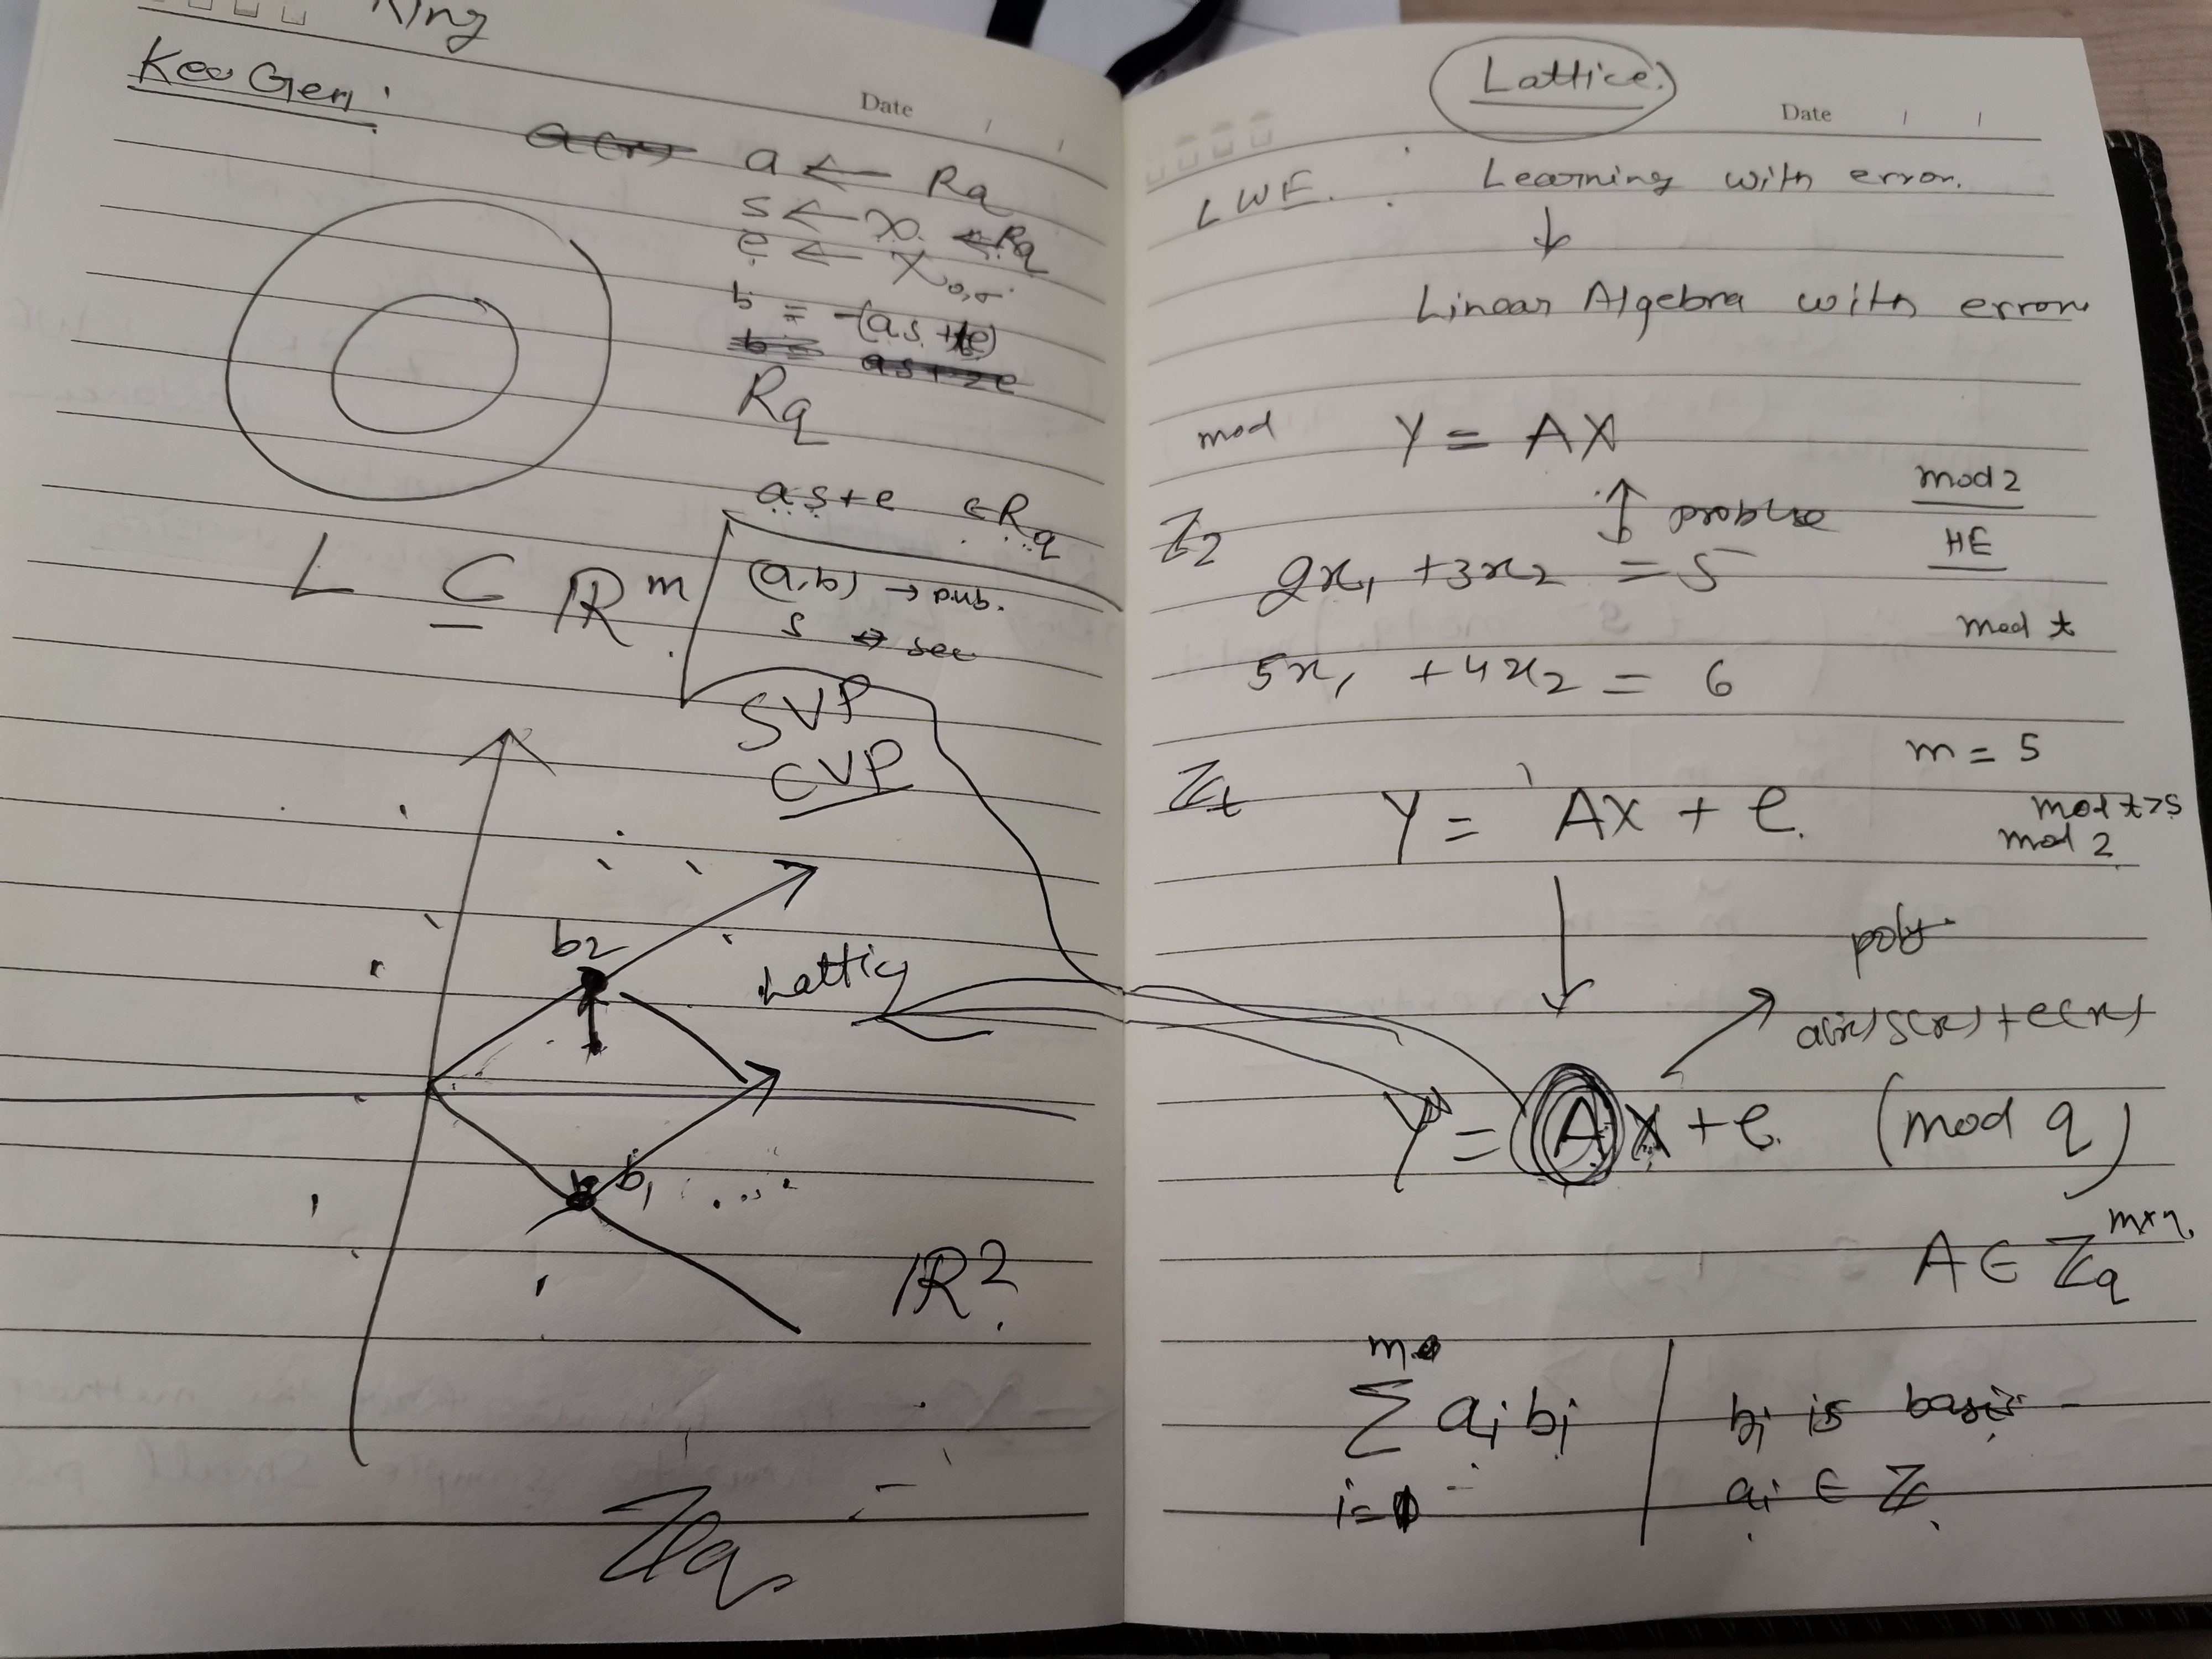 Ring
Key Gen:
Date
a(x) a ← Rq
s ← χ ← Rq
e ← χ0,σ
b = -(a.s + te)
b = as + 2e
Rq
a.s + e ∈ Rq
L ⊆ ℝ^m
(a,b) → pub.
s → sec
SVP
CVP
b2
Lattic
b1
ℝ²
ℤq
Lattice
Date
LWE. : Learning with error.
↓
Linear Algebra with error
mod Y = AX
mod 2
↕ proble
HE
ℤ2
2x1 + 3x2 = 5
mod t
5x1 + 4x2 = 6
m = 5
ℤt
Y = AX + e.
mod t>5
mod 2
↓
poly
a(x)s(x)+e(x)
Y = AX + e. (mod q)
A ∈ ℤq^m×n
m
Σ ai bi | bi is basis
i=1 | ai ∈ ℤ